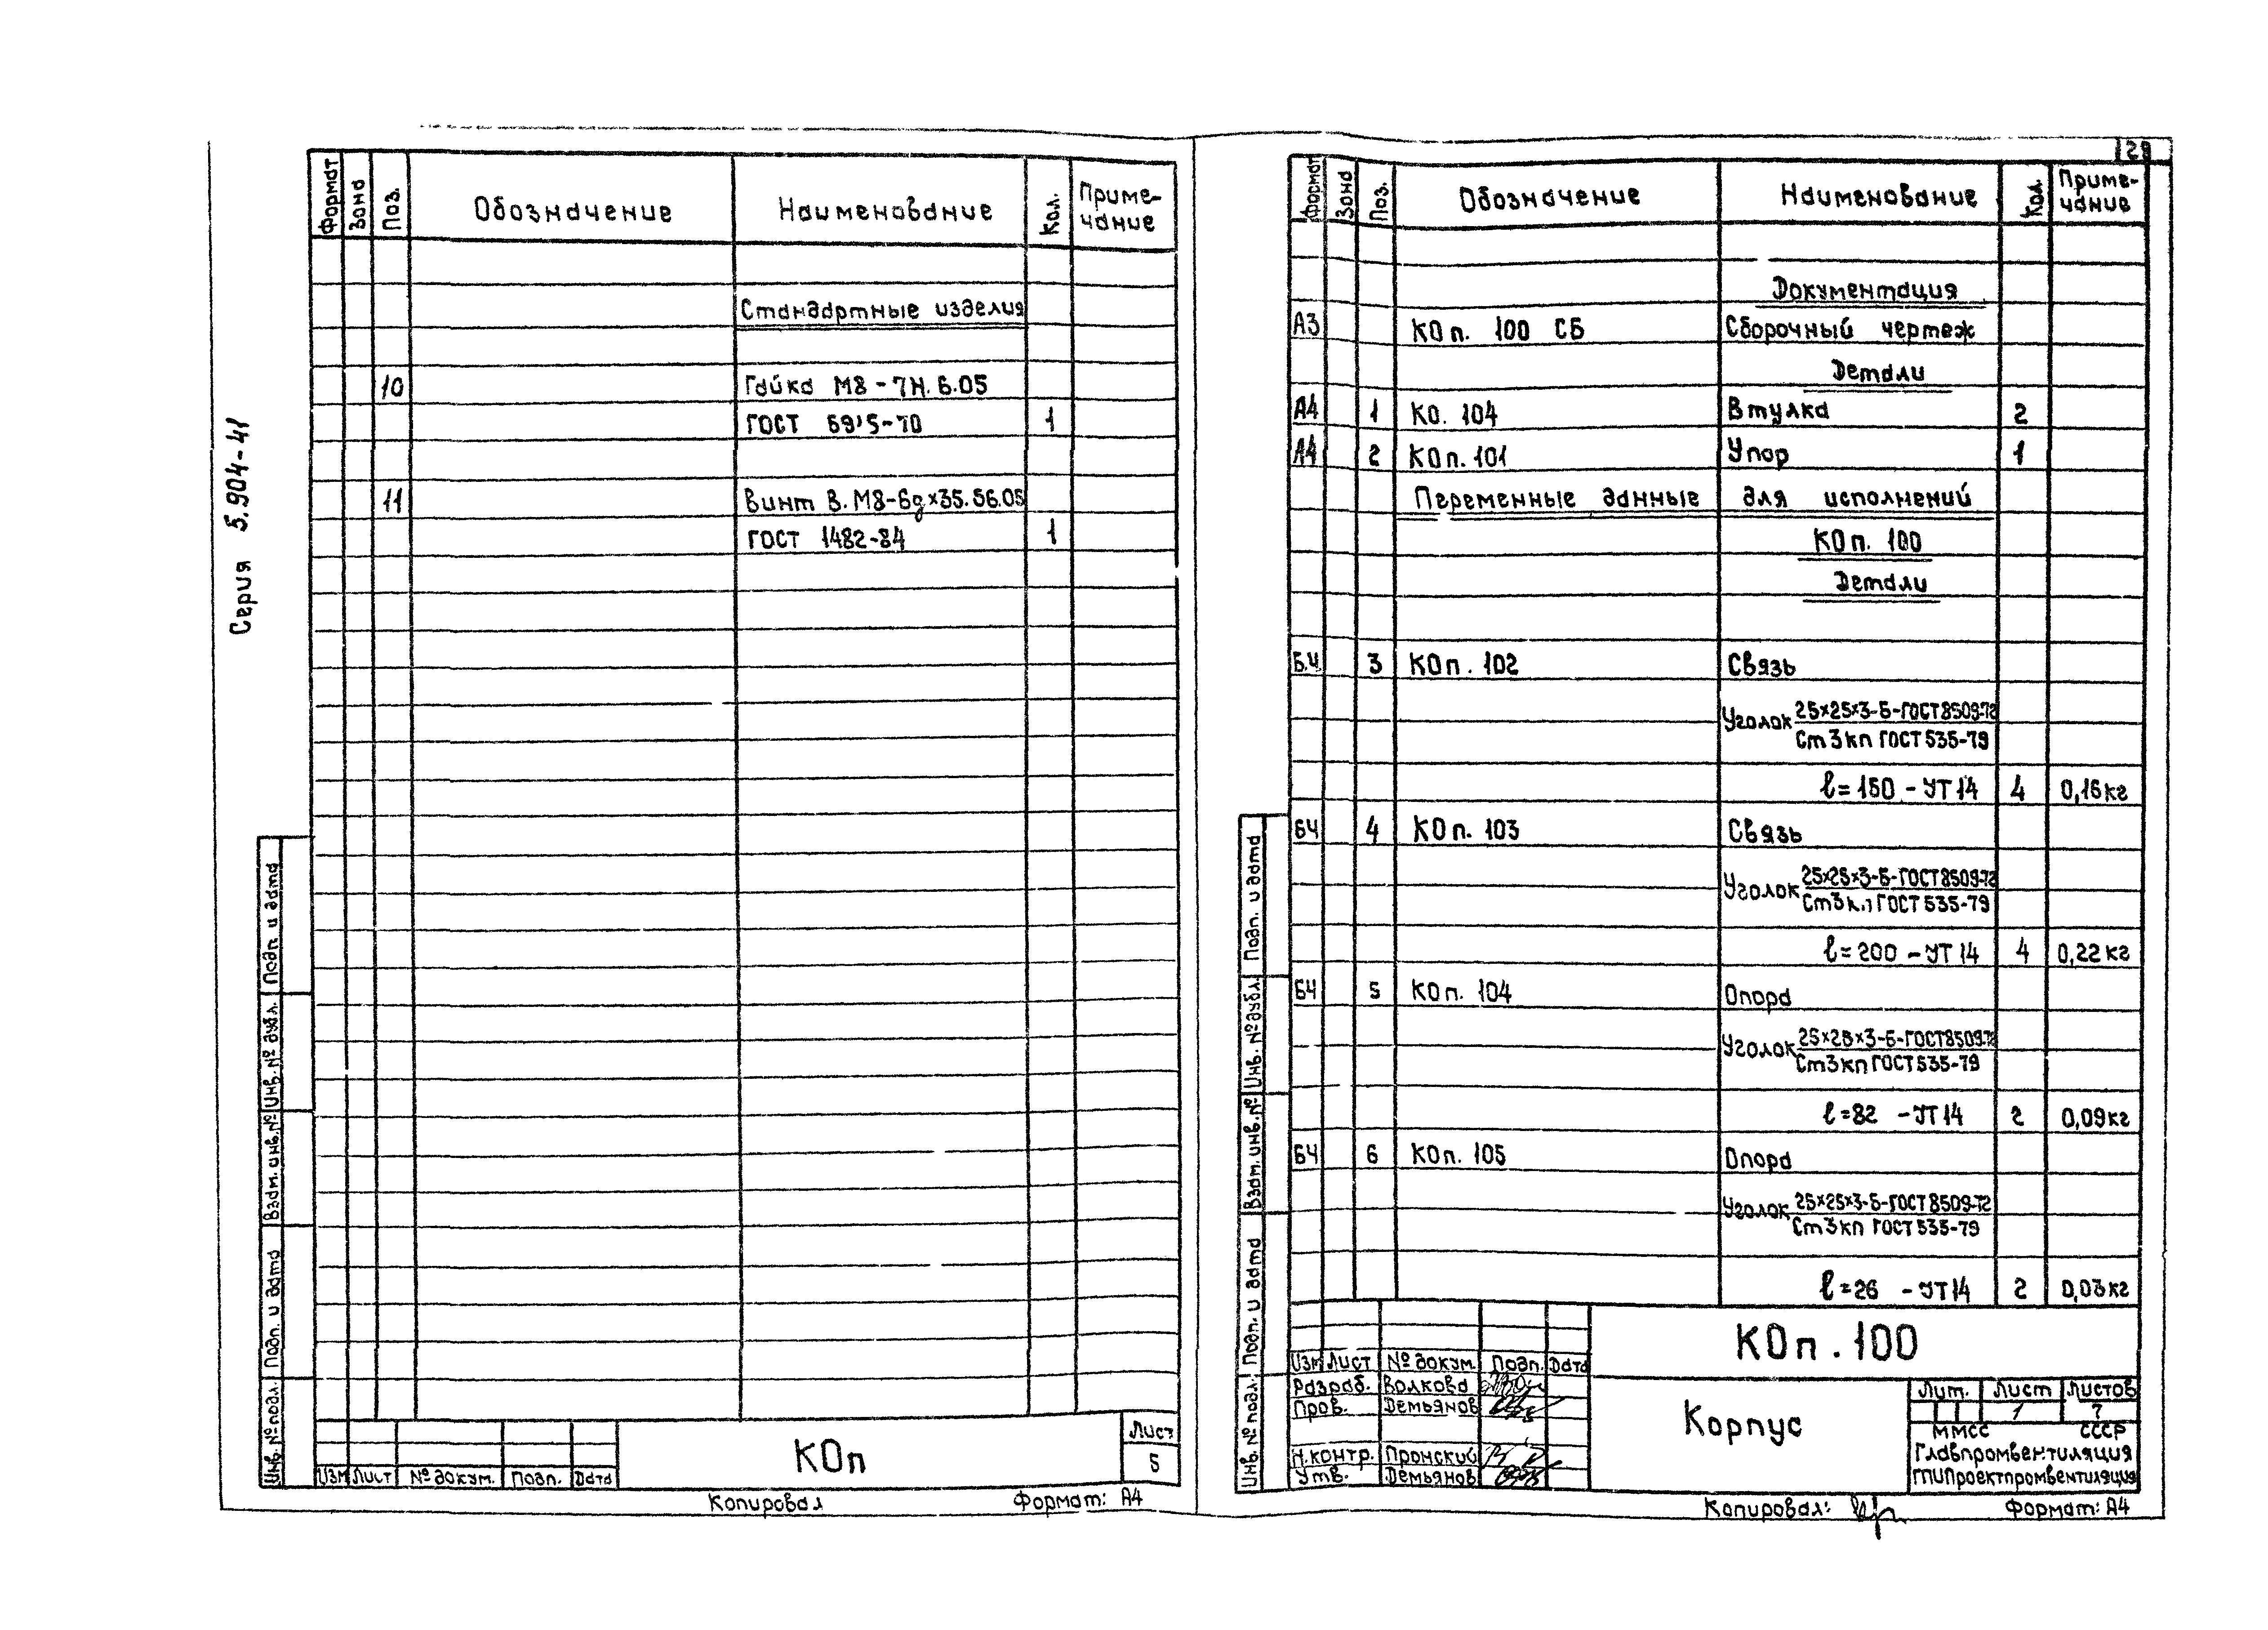 Серия 5.904-41
Формат Зона Поз. Обозначение Наименование Кол. Приме-
чание
Стандартные изделия
10 Гайка М8-7Н.6.05
ГОСТ 5915-70 1
11 Винт В.М8-6g×35.56.05
ГОСТ 1482-84 1
Подп. и дата
Инв. № дубл.
Взам. инв. №
Подп. и дата
Инв. № подл.
Изм Лист № докум. Подп. Дата
КОп
Лист
5
Копировал Формат: А4
29
Формат Зона Поз. Обозначение Наименование Кол. Приме-
чание
Документация
А3 КОп. 100 СБ Сборочный чертеж
Детали
А4 1 КО. 104 Втулка 2
А4 2 КОп. 101 Упор 1
Переменные данные для исполнений
КОп. 100
Детали
Б.Ч 3 КОп. 102 Связь
Уголок 25×25×3-Б-ГОСТ8509-72
Ст3кп ГОСТ535-79
l=150 - УТ14 4 0,16кг
БЧ 4 КОп. 103 Связь
Уголок 25×25×3-Б-ГОСТ8509-72
Ст3кп ГОСТ535-79
l=200 - УТ14 4 0,22кг
БЧ 5 КОп. 104 Опора
Уголок 25×25×3-Б-ГОСТ8509-72
Ст3кп ГОСТ535-79
l=82 - УТ14 2 0,09кг
БЧ 6 КОп. 105 Опора
Уголок 25×25×3-Б-ГОСТ8509-72
Ст3кп ГОСТ535-79
l=26 - УТ14 2 0,03кг
Подп. и дата
Инв. № дубл.
Взам. инв. №
Подп. и дата
Инв. № подл.
Изм Лист № докум. Подп. Дата
Разраб. Волкова
Пров. Демьянов
Н.контр. Пронский
Утв. Демьянов
КОп. 100
Корпус
Лит. Лист Листов
1 7
ММСС СССР
Главпромвентиляция
ГПИПроектпромвентиляция
Копировал: Формат: А4